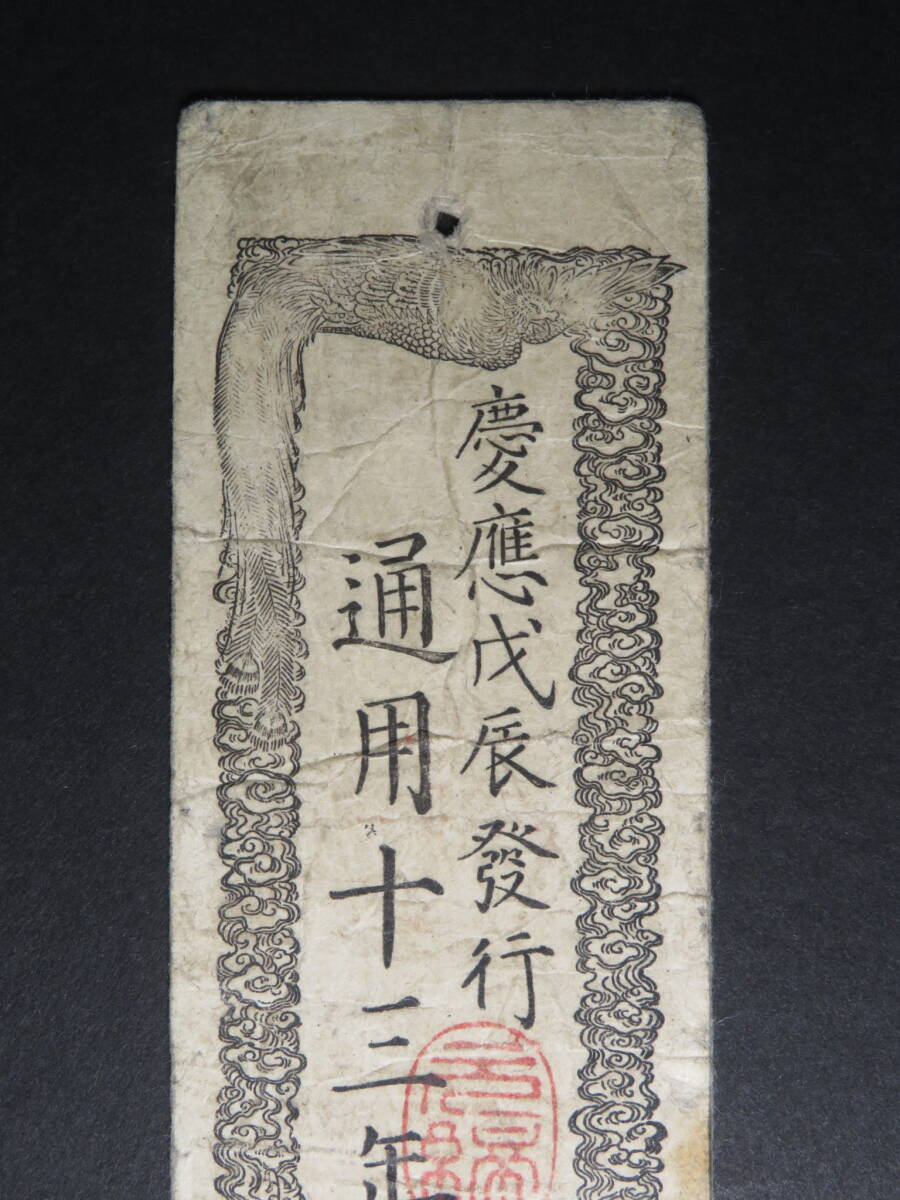 慶應戊辰發行
通用十三年